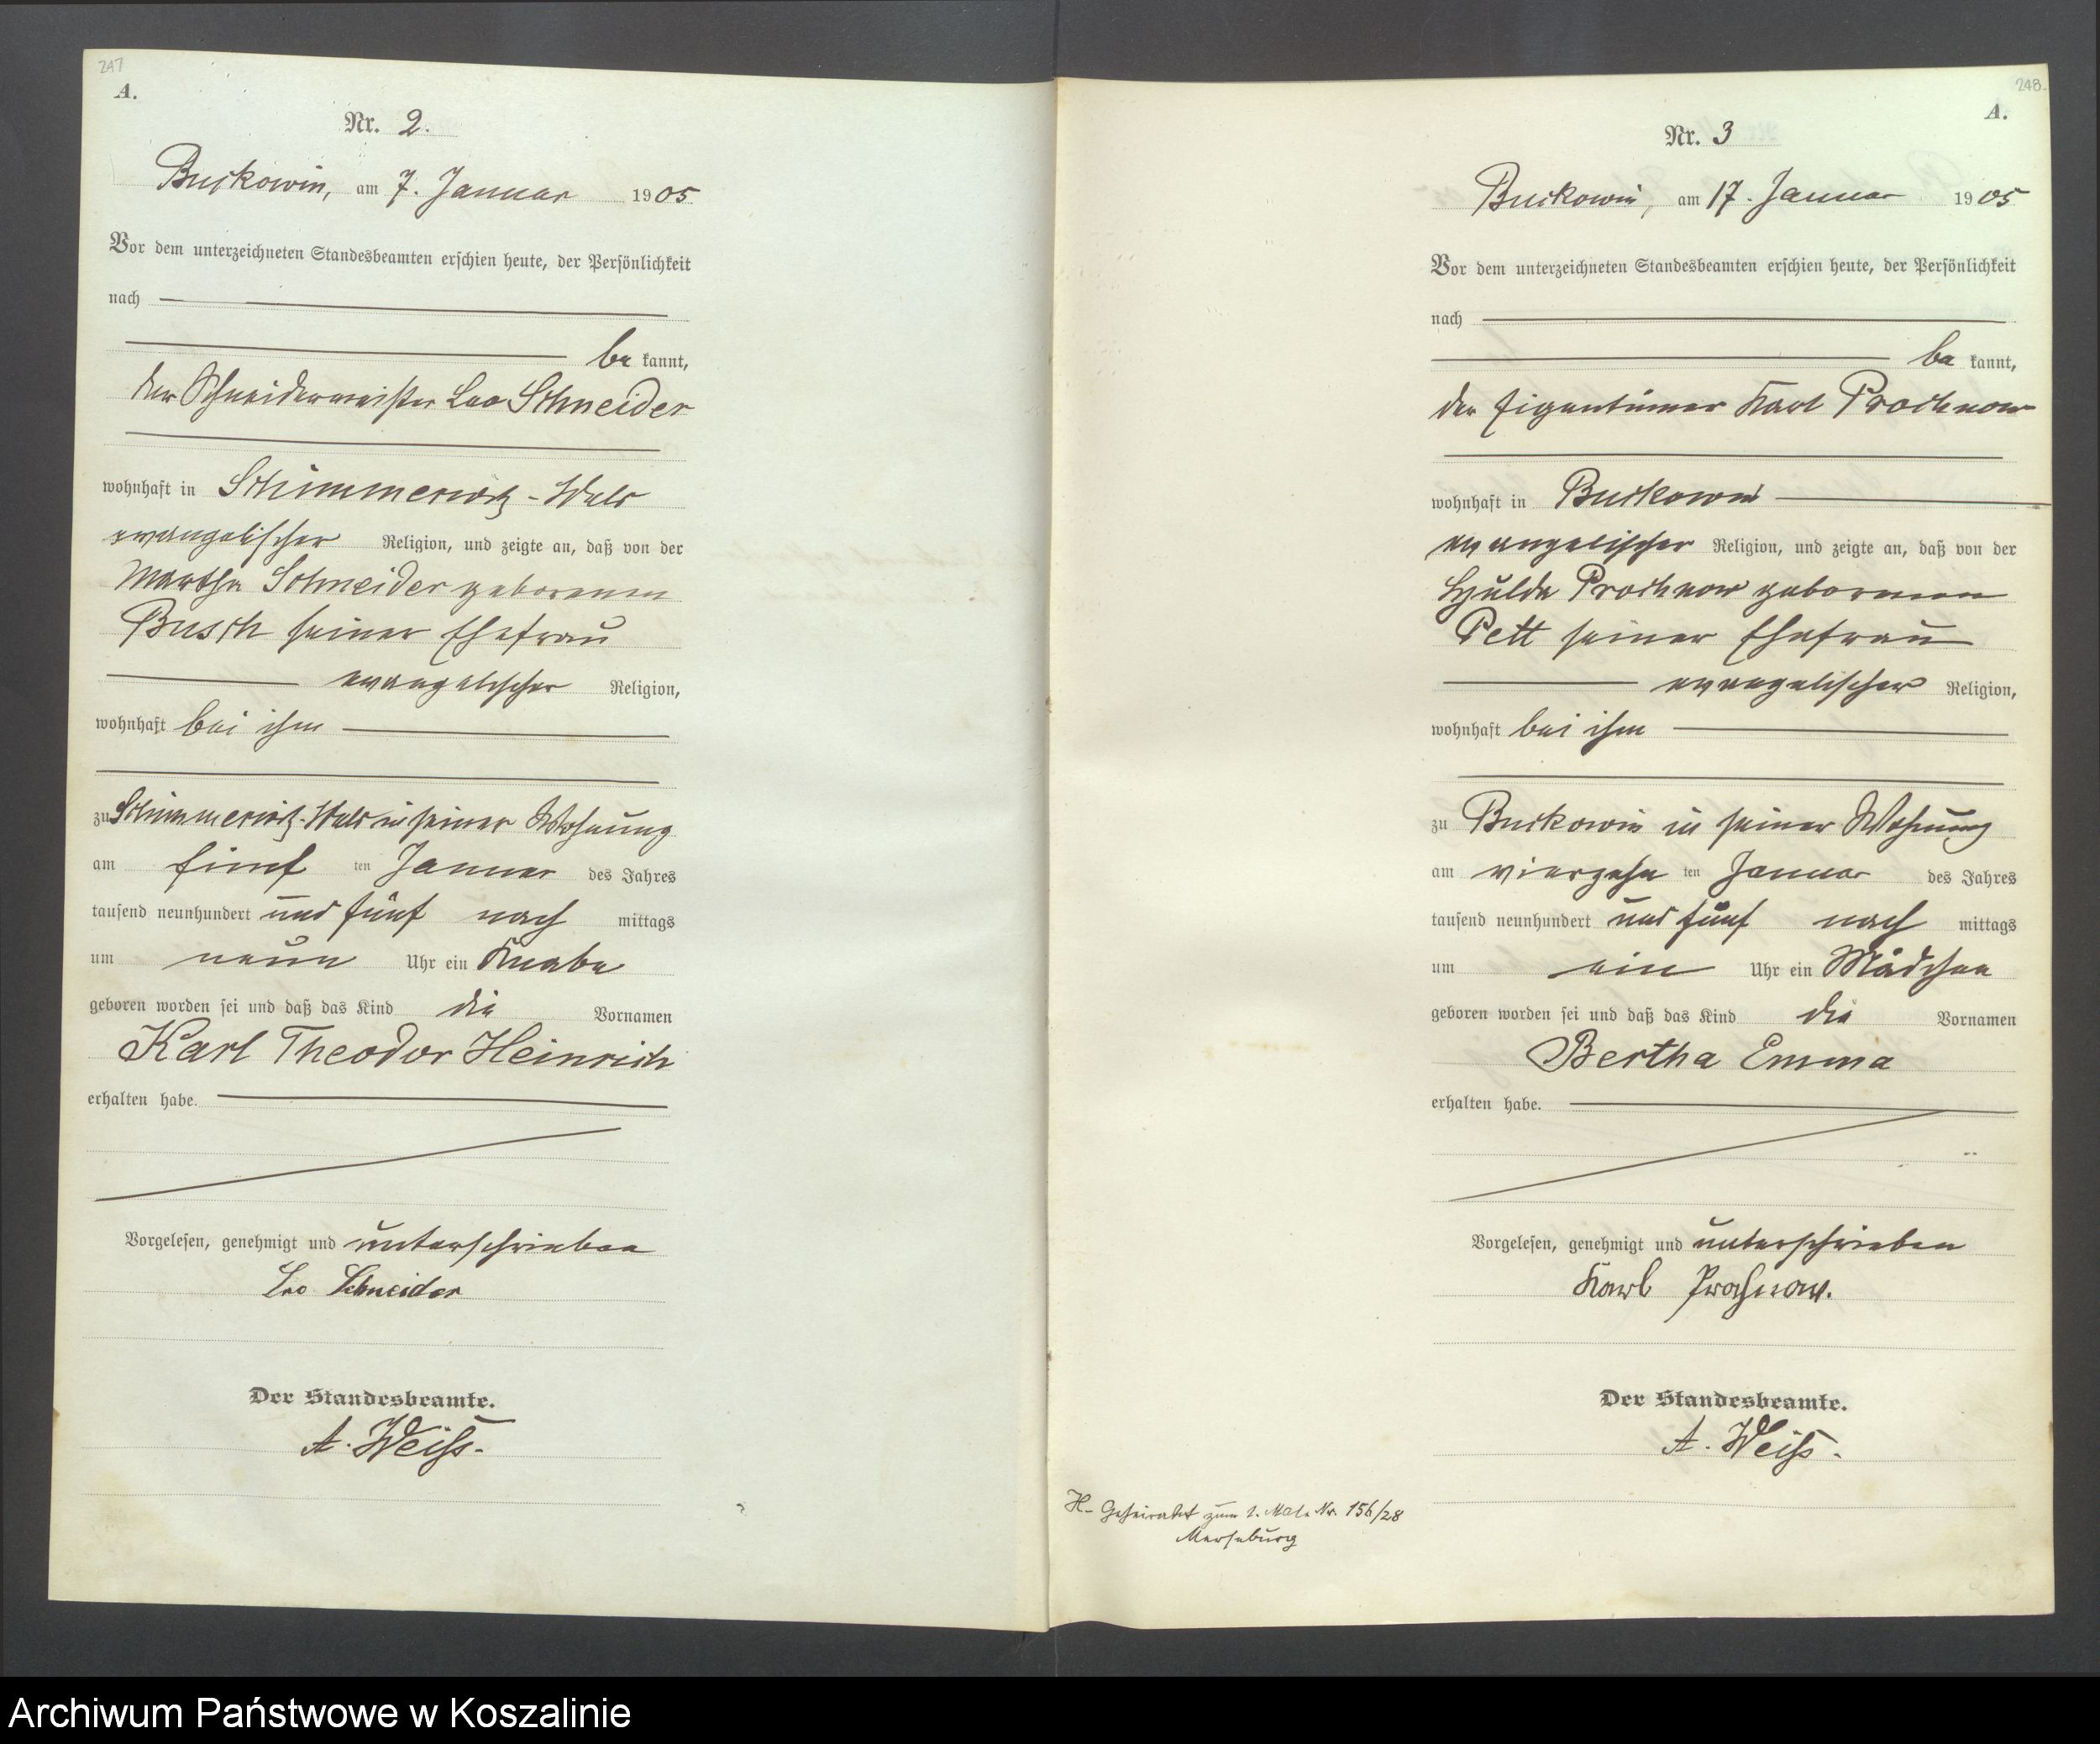 247
A.
Nr. 2.
Buckowin, am 7. Januar 1905
Vor dem unterzeichneten Standesbeamten erschien heute, der Persönlichkeit
nach
be kannt,
der Schneidermeister Leo Schneider
wohnhaft in Schimmerwitz-Wald
evangelischer Religion, und zeigte an, daß von der
Martha Schneider geborenen
Busch seiner Ehefrau
evangelischer Religion,
wohnhaft bei ihm
zu Schimmerwitz-Wald in seiner Wohnung
am fünf ten Januar des Jahres
tausend neunhundert und fünf nach mittags
um neun Uhr ein Knabe
geboren worden sei und daß das Kind die Vornamen
Karl Theodor Heinrich
erhalten habe.
Vorgelesen, genehmigt und unterschrieben
Leo Schneider
Der Standesbeamte.
A. Weiß.
248
A.
Nr. 3
Buckowin, am 17. Januar 1905
Vor dem unterzeichneten Standesbeamten erschien heute, der Persönlichkeit
nach
be kannt,
der Eigentümer Karl Prochnow
wohnhaft in Buckowin
evangelischer Religion, und zeigte an, daß von der
Hulda Prochnow geborenen
Pett seiner Ehefrau
evangelischer Religion,
wohnhaft bei ihm
zu Buckowin in seiner Wohnung
am vierzehn ten Januar des Jahres
tausend neunhundert und fünf nach mittags
um ein Uhr ein Mädchen
geboren worden sei und daß das Kind die Vornamen
Bertha Emma
erhalten habe.
Vorgelesen, genehmigt und unterschrieben
Karl Prochnow.
Der Standesbeamte.
A. Weiß.
H- Geheiratet zum 1. Mal. Nr. 156/28
Merseburg
Archiwum Państwowe w Koszalinie